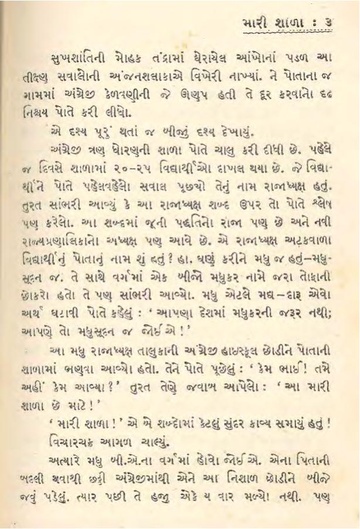 મારી શાળા : ૩
સુખશાંતિની મોહક તંદ્રામાં ઘેરાયેલ આંખોનાં પડળ આ
તીક્ષ્ણ સવાલોની અંજનશલાકાએ વિખેરી નાખ્યાં. ને પોતાના જ
ગામમાં અંગ્રેજી કેળવણીની જે ઊણપ હતી તે દૂર કરવાનો દૃઢ
નિશ્ચય પોતે કરી લીધો.
એ દૃશ્ય પૂરું થતાં જ બીજું દૃશ્ય દેખાયું.
અંગ્રેજી ત્રણ ધોરણની શાળા પોતે ચાલુ કરી દીધી છે. પહેલે
જ દિવસે શાળામાં ૨૦-૨૫ વિદ્યાર્થીઓ દાખલ થયા છે. જે વિદ્યા-
ર્થીને પોતે પહેલવહેલો સવાલ પૂછ્યો તેનું નામ રાજાધ્યક્ષ હતું.
તુરત સાંભરી આવ્યું કે આ રાજાધ્યક્ષ શબ્દ ઉપર તો પોતે શ્લેષ
પણ કરેલો. આ શબ્દમાં જૂની પદ્ધતિનો રાજા પણ છે અને નવી
રાજ્યપ્રણાલિકાનો અધ્યક્ષ પણ આવે છે. એ રાજાધ્યક્ષ અટકવાળા
વિદ્યાર્થીનું પોતાનું નામ શું હતું ? હા. ઘણું કરીને મધુ જ હતું–મધુ-
સૂદન જ. તે સાથે વર્ગમાં એક બીજો મધુકર નામે જરા તોફાની
છોકરો હતો તે પણ સાંભરી આવ્યો. મધુ એટલે મદ્ય – દારૂ એવો
અર્થ ઘટાવી પોતે કહેલું : ‘ આપણા દેશમાં મધુકરની જરૂર નથી;
આપણે તો મધુસૂદન જ જોઈએ !’
આ મધુ રાજાધ્યક્ષ તાલુકાની અંગ્રેજી હાઇસ્કૂલ છોડીને પોતાની
શાળામાં ભણવા આવ્યો હતો. તેને પોતે પૂછેલું : ‘ કેમ ભાઈ ! તમે
અહીં કેમ આવ્યા ?’ તુરત તેણે જવાબ આપેલો : ‘ આ મારી
શાળા છે માટે !’
‘ મારી શાળા !’ એ બે શબ્દોમાં કેટલું સુંદર કાવ્ય સમાયું હતું !
વિચારચક્ર આગળ ચાલ્યું.
અત્યારે મધુ બી.એ.ના વર્ગમાં હોવો જોઈએ. એના પિતાની
બદલી થવાથી છઠ્ઠી અંગ્રેજીમાંથી એને આ નિશાળ છોડીને બીજે
જવું પડેલું. ત્યાર પછી તે હજી એકે ય વાર મળ્યો નથી. પણ